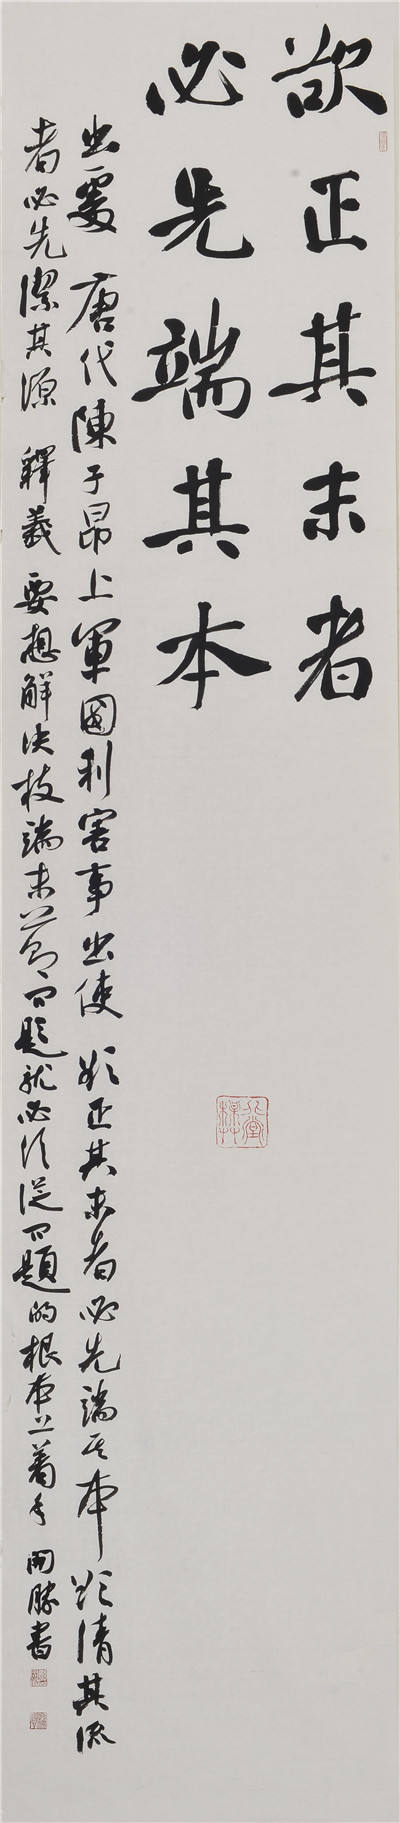 欲正其末者
必先端其本
出處 唐代陳子昂上軍國利害事出使 欲正其末者必先端其本 欲清其流
者必先潔其源 釋義 要想解决枝端末节问题就必须從问題的根本上着手 開勝書